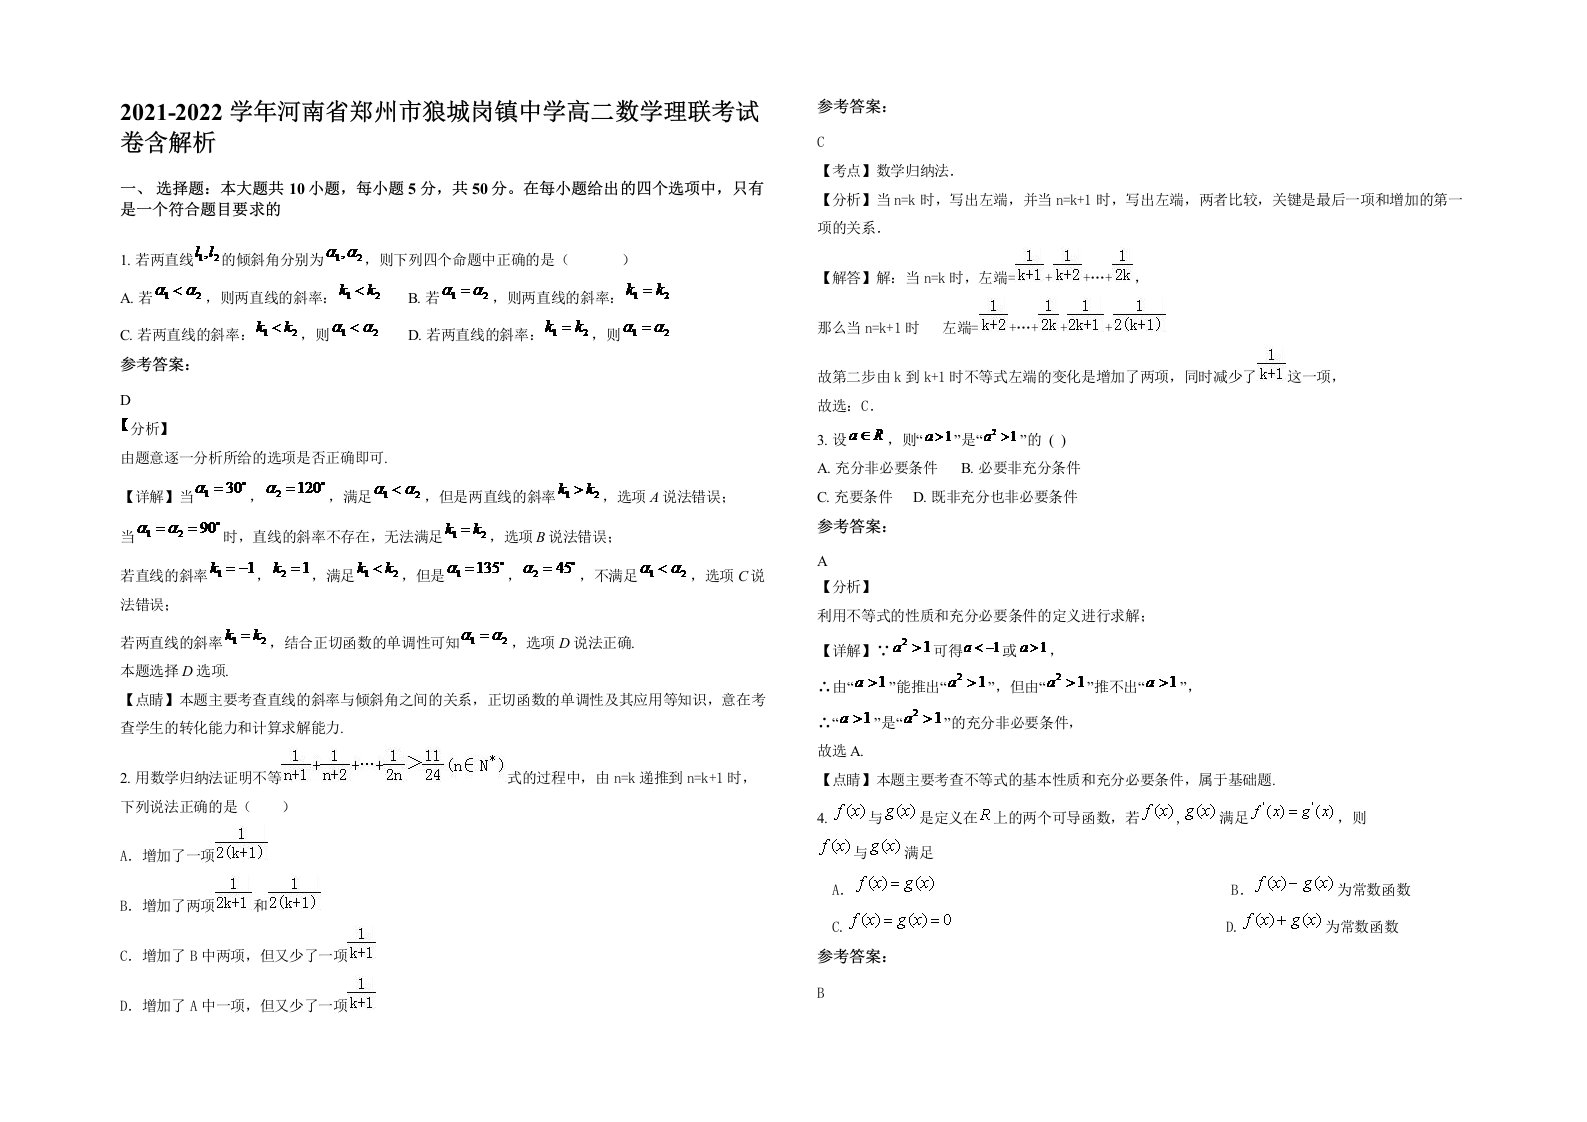 2021-2022 学年河南省郑州市狼城岗镇中学高二数学理联考试
卷含解析
一、 选择题：本大题共 10 小题，每小题 5 分，共 50 分。在每小题给出的四个选项中，只有
是一个符合题目要求的
1. 若两直线l₁,l₂的倾斜角分别为α₁,α₂，则下列四个命题中正确的是（　　　）
A. 若α₁<α₂，则两直线的斜率：k₁<k₂　B. 若α₁=α₂，则两直线的斜率：k₁=k₂
C. 若两直线的斜率：k₁<k₂，则α₁<α₂　D. 若两直线的斜率：k₁=k₂，则α₁=α₂
参考答案：
D
【分析】
由题意逐一分析所给的选项是否正确即可.
【详解】当α₁=30°，α₂=120°，满足α₁<α₂，但是两直线的斜率k₁>k₂，选项 A 说法错误；
当α₁=α₂=90°时，直线的斜率不存在，无法满足k₁=k₂，选项 B 说法错误；
若直线的斜率k₁=-1，k₂=1，满足k₁<k₂，但是α₁=135°，α₂=45°，不满足α₁<α₂，选项 C 说
法错误；
若两直线的斜率k₁=k₂，结合正切函数的单调性可知α₁=α₂，选项 D 说法正确.
本题选择 D 选项.
【点睛】本题主要考查直线的斜率与倾斜角之间的关系，正切函数的单调性及其应用等知识，意在考
查学生的转化能力和计算求解能力.
2. 用数学归纳法证明不等1/(n+1)+1/(n+2)+…+1/(2n)>11/24(n∈N*)式的过程中，由 n=k 递推到 n=k+1 时，
下列说法正确的是（　　）
A．增加了一项1/(2(k+1))
B．增加了两项1/(2k+1)和1/(2(k+1))
C．增加了 B 中两项，但又少了一项1/(k+1)
D．增加了 A 中一项，但又少了一项1/(k+1)
参考答案：
C
【考点】数学归纳法．
【分析】当 n=k 时，写出左端，并当 n=k+1 时，写出左端，两者比较，关键是最后一项和增加的第一
项的关系．
【解答】解：当 n=k 时，左端=1/(k+1)+1/(k+2)+…+1/(2k)，
那么当 n=k+1 时　左端=1/(k+2)+…+1/(2k)+1/(2k+1)+1/(2(k+1))
故第二步由 k 到 k+1 时不等式左端的变化是增加了两项，同时减少了1/(k+1)这一项，
故选：C．
3. 设a∈R，则“a>1”是“a²>1”的（ ）
A. 充分非必要条件　B. 必要非充分条件
C. 充要条件　D. 既非充分也非必要条件
参考答案：
A
【分析】
利用不等式的性质和充分必要条件的定义进行求解；
【详解】∵a²>1可得a<-1或a>1，
∴由“a>1”能推出“a²>1”，但由“a²>1”推不出“a>1”，
∴“a>1”是“a²>1”的充分非必要条件，
故选 A.
【点睛】本题主要考查不等式的基本性质和充分必要条件，属于基础题.
4. f(x)与g(x)是定义在R上的两个可导函数，若f(x),g(x)满足f'(x)=g'(x)，则
f(x)与g(x)满足
A．f(x)=g(x)　B．f(x)-g(x)为常数函数
C. f(x)=g(x)=0　D. f(x)+g(x)为常数函数
参考答案：
B